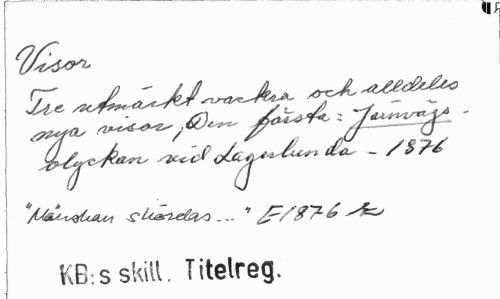 Visor
Tre utmärkt vackra och alldeles
nya visor, Den första: Järnvägs-
olyckan vid Lagerlunda - 1876
"Människan skördas..." E 1876
KB:s skill. Titelreg.